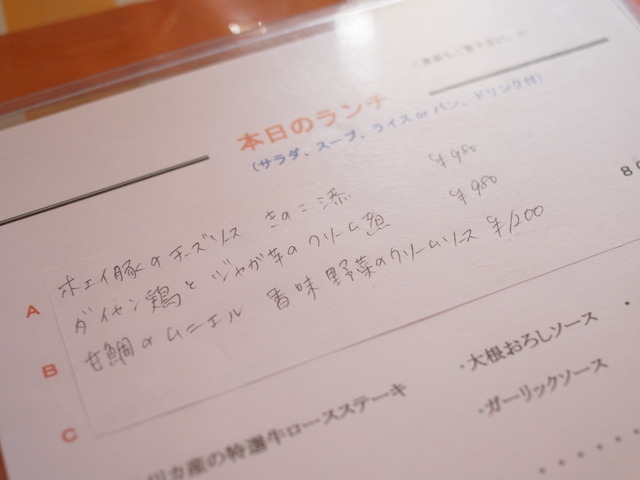 本日のランチ
(サラダ、スープ、ライス or パン、ドリンク付)
A ホエイ豚のチーズソース きのこ添 ¥980
B ダイセン鶏とジャガ芋のクリーム煮 ¥980
C 甘鯛のムニエル 香味野菜のクリームソース ¥1200
産の特選牛ロースステーキ
・大根おろしソース
・ガーリックソース